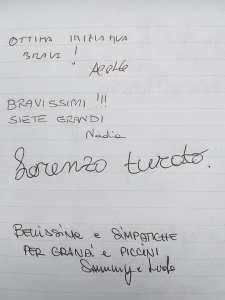 OTTIMA INIZIATIVA
BRAVI !
BRAVISSIMI !!!
SIETE GRANDI
Nadia
Lorenzo
BELLISSIME E SIMPATICHE
PER GRANDI E PICCINI
Sammy e